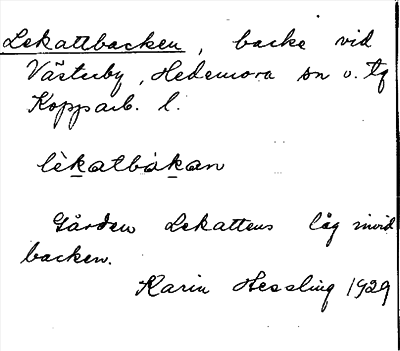 Lekattbacken, backe vid
Västerby, Hedemora sn o. tg
Kopparb. l.
lèkatbàkan
Gården Lekattens låg invid
backen.
Karin Hessling 1929